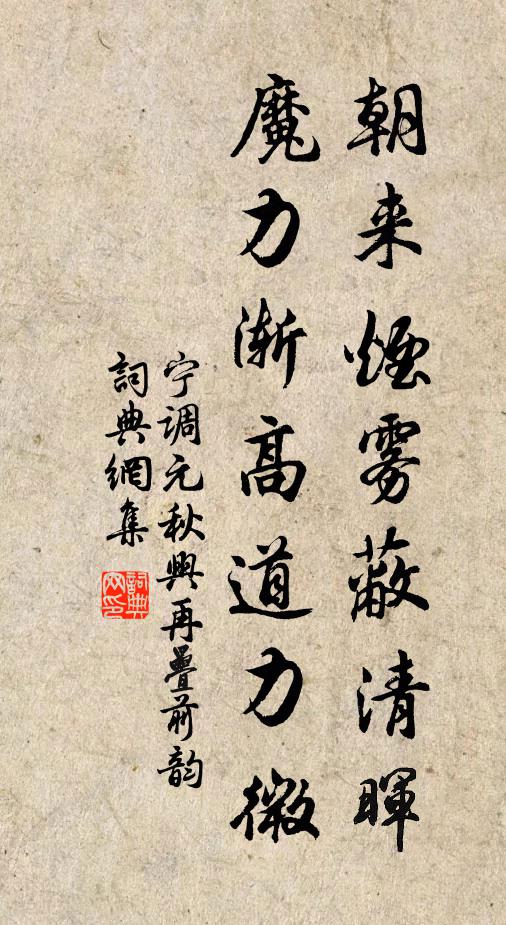 朝来煙雾蔽清暉
魔力渐高道力微
宁调元秋興再疊前韵
詞典網集
詞典网印